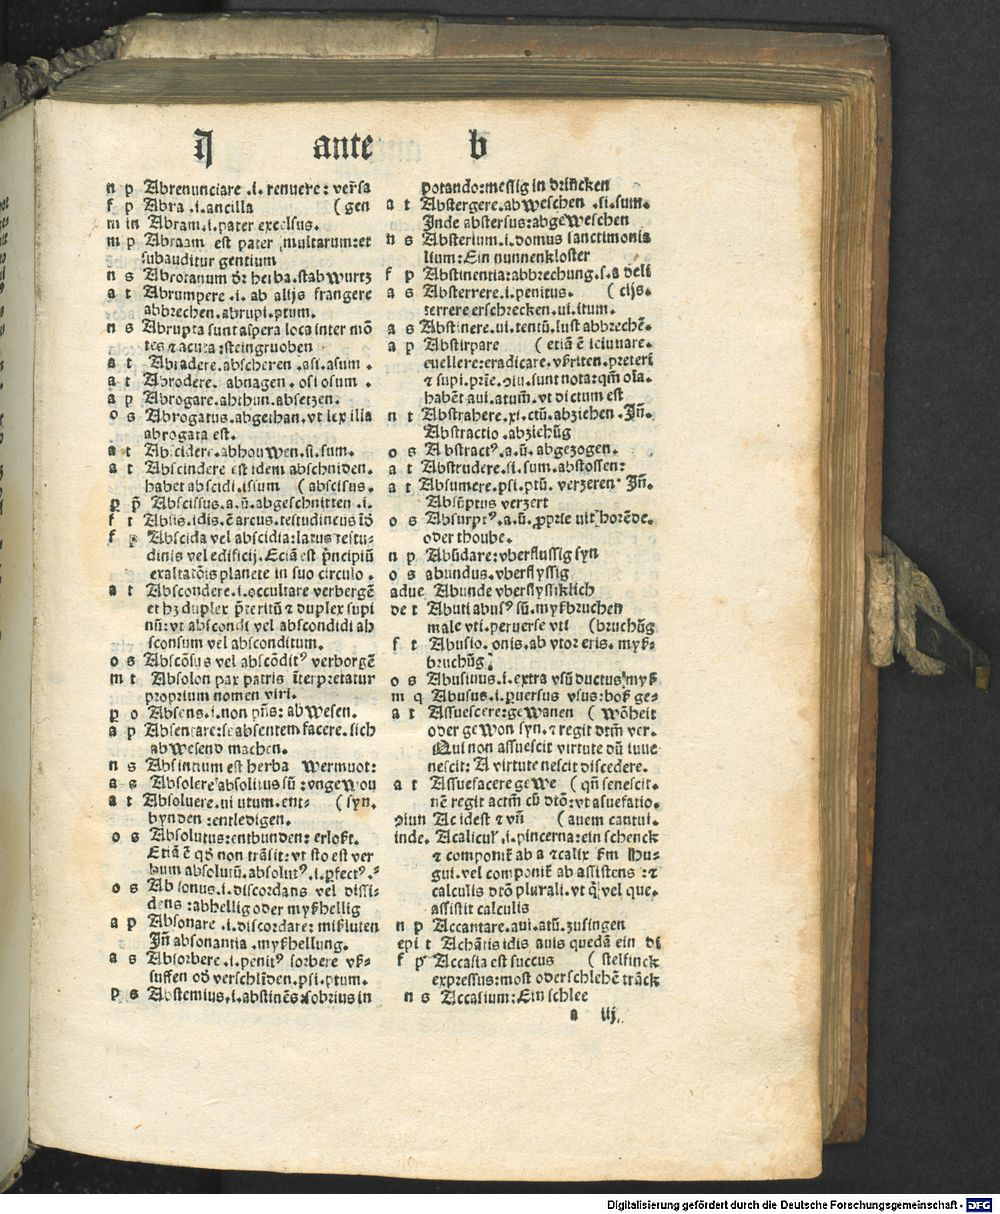 A ante b
n p Abrenunciare .i. renuere: versa
f p Abra .i. ancilla (gen
m in Abram .i. pater excelsus.
m p Abraam est pater multarum: et
subauditur gentium
n s Abrotanum dr̄ herba. stabwurtz
a t Abrumpere .i. ab alijs frangere
abbrechen. abrupi .ptum.
n s Abrupta sunt aspera loca inter mō
tes ⁊ acuta: steingruoben
a t Abradere. abscheren .asi .asum.
a t Abrodere. abnagen. osi osum.
a p Abrogare. abthun. absetzen.
o s Abrogatus. abgethan. vt lex illa
abrogata est.
a t Abscidere. abhouwen .si. sum.
a t Abscindere est idem abschniden.
habet abscidi .isium (abscisus.
p p̄ Abscissus .a .ū. abgeschnitten .i.
f t Absis .idis. ē arcus. testudineus
f p Abscida vel abscidia: latus testu-
dinis vel edificij. Eciā est p̄ncipiū
exaltatōis planete in suo circulo.
a t Abscondere .i. occultare verbergē
et hꝫ duplex p̄teritū ⁊ duplex supi
nū: vt abscondi vel abscondidi ab
sconsum vel absconditum.
o s Abscōsus vel abscōditꝰ verborgē
m t Absolon pax patris īterpretatur
proprium nomen viri.
p o Absens .i. non p̄ns: abwesen.
a p Absentare: se absentem facere. sich
abwesend machen.
n s Absintium est herba wermuot:
a s Absolere absolitus sū: vngewon
a t Absoluere .ui utum. ent- (syn.
bynden: entledigen.
o s Absolutus: entbunden: erloßt.
Etiā ē qd̓ non trāsit: vt sto est ver
bum absolutū. absolutꝰ .i. ꝑfectꝰ.
o s Absonus .i. discordans vel dissi-
dens: abhellig oder myßhellig
a p Absonare .i. discordare: mißluten
Jn̄ absonantia. myßhellung.
a s Absorbere .i. penitꝰ sorbere vß-
suffen od̓ verschlīden. psi .ptum.
p s Abstemius .i. abstinēs: sobrius in
potando: messig in drincken
a t Abstergere. abweschen .si. sum.
Jnde abstersus: abgeweschen
n s Absterium .i. domus sanctimonia
lium: Ein nunnenkloster
f p Abstinentia: abbrechung .s. a deli
a s Absterrere .i. penitus. (cijs.
terrere erschrecken. ui. itum.
a s Abstinere. ui. tentū. lust abbrechē.
a p Abstirpare (etiā ē ieiunare.
euellere: eradicare. vßriten. preteri
⁊ supi. p̄rie. sunt nota: qm̄ oīa.
habēt aui. atum̄. vt dictum est
n t Abstrahere. xi. ctū. abziehen. Jn̄.
Abstractio. abziehūg
o s Abstractꝰ .a .ū. abgezogen.
a t Abstrudere. si. sum. abstossen:
a t Absumere. psi. ptū. verzeren. Jn̄.
Absūptus verzert
o s Absurptꝰ .a .ū. ꝓprie vīt horēde.
oder thoube.
n p Abūdare: vberflussig syn
o s abundus. vberflyssig
adue Abunde vberflyssiklich
de t Abuti abusꝰ sū. myßbruchen
male vti. peruerse vti (bruchūg
f t Abusio. onis. ab vtor eris. myß-
bruchūg.
o s Abusiuus .i. extra vsū ductus myß
m q Abusus .i. ꝑuersus vsus: boß ge-
a t Assuescere: gewanen (wōheit
oder gewon syn. ⁊ regit dtm̄ ver.
Qui non assuescit virtute dū iuue
nescit: A virtute nescit discedere.
a t Assuefacere gewe (qn̄ senescit.
nē regit actm̄ cū dtō: vt asuefatio.
ꝯiun Ac idest ⁊ vn̄ (auem cantui.
inde. Acalicul .i. pincerna: ein schenck
⁊ componit̄ ab a ⁊ calix ßm Hu-
gui. vel componit̄ ab assistens :⁊
calculis dtōm plurali. vt q̄ vel que.
assistit calculis
n p Accantare. aui. atū. zusingen
epi t Achātis idis auis quedā ein di
f p Accasia est succus (stelfinck
expressus: most oder schlehē trāck
n s Accasium: Ein schlee
a iij.
Digitalisierung gefördert durch die Deutsche Forschungsgemeinschaft - DFG